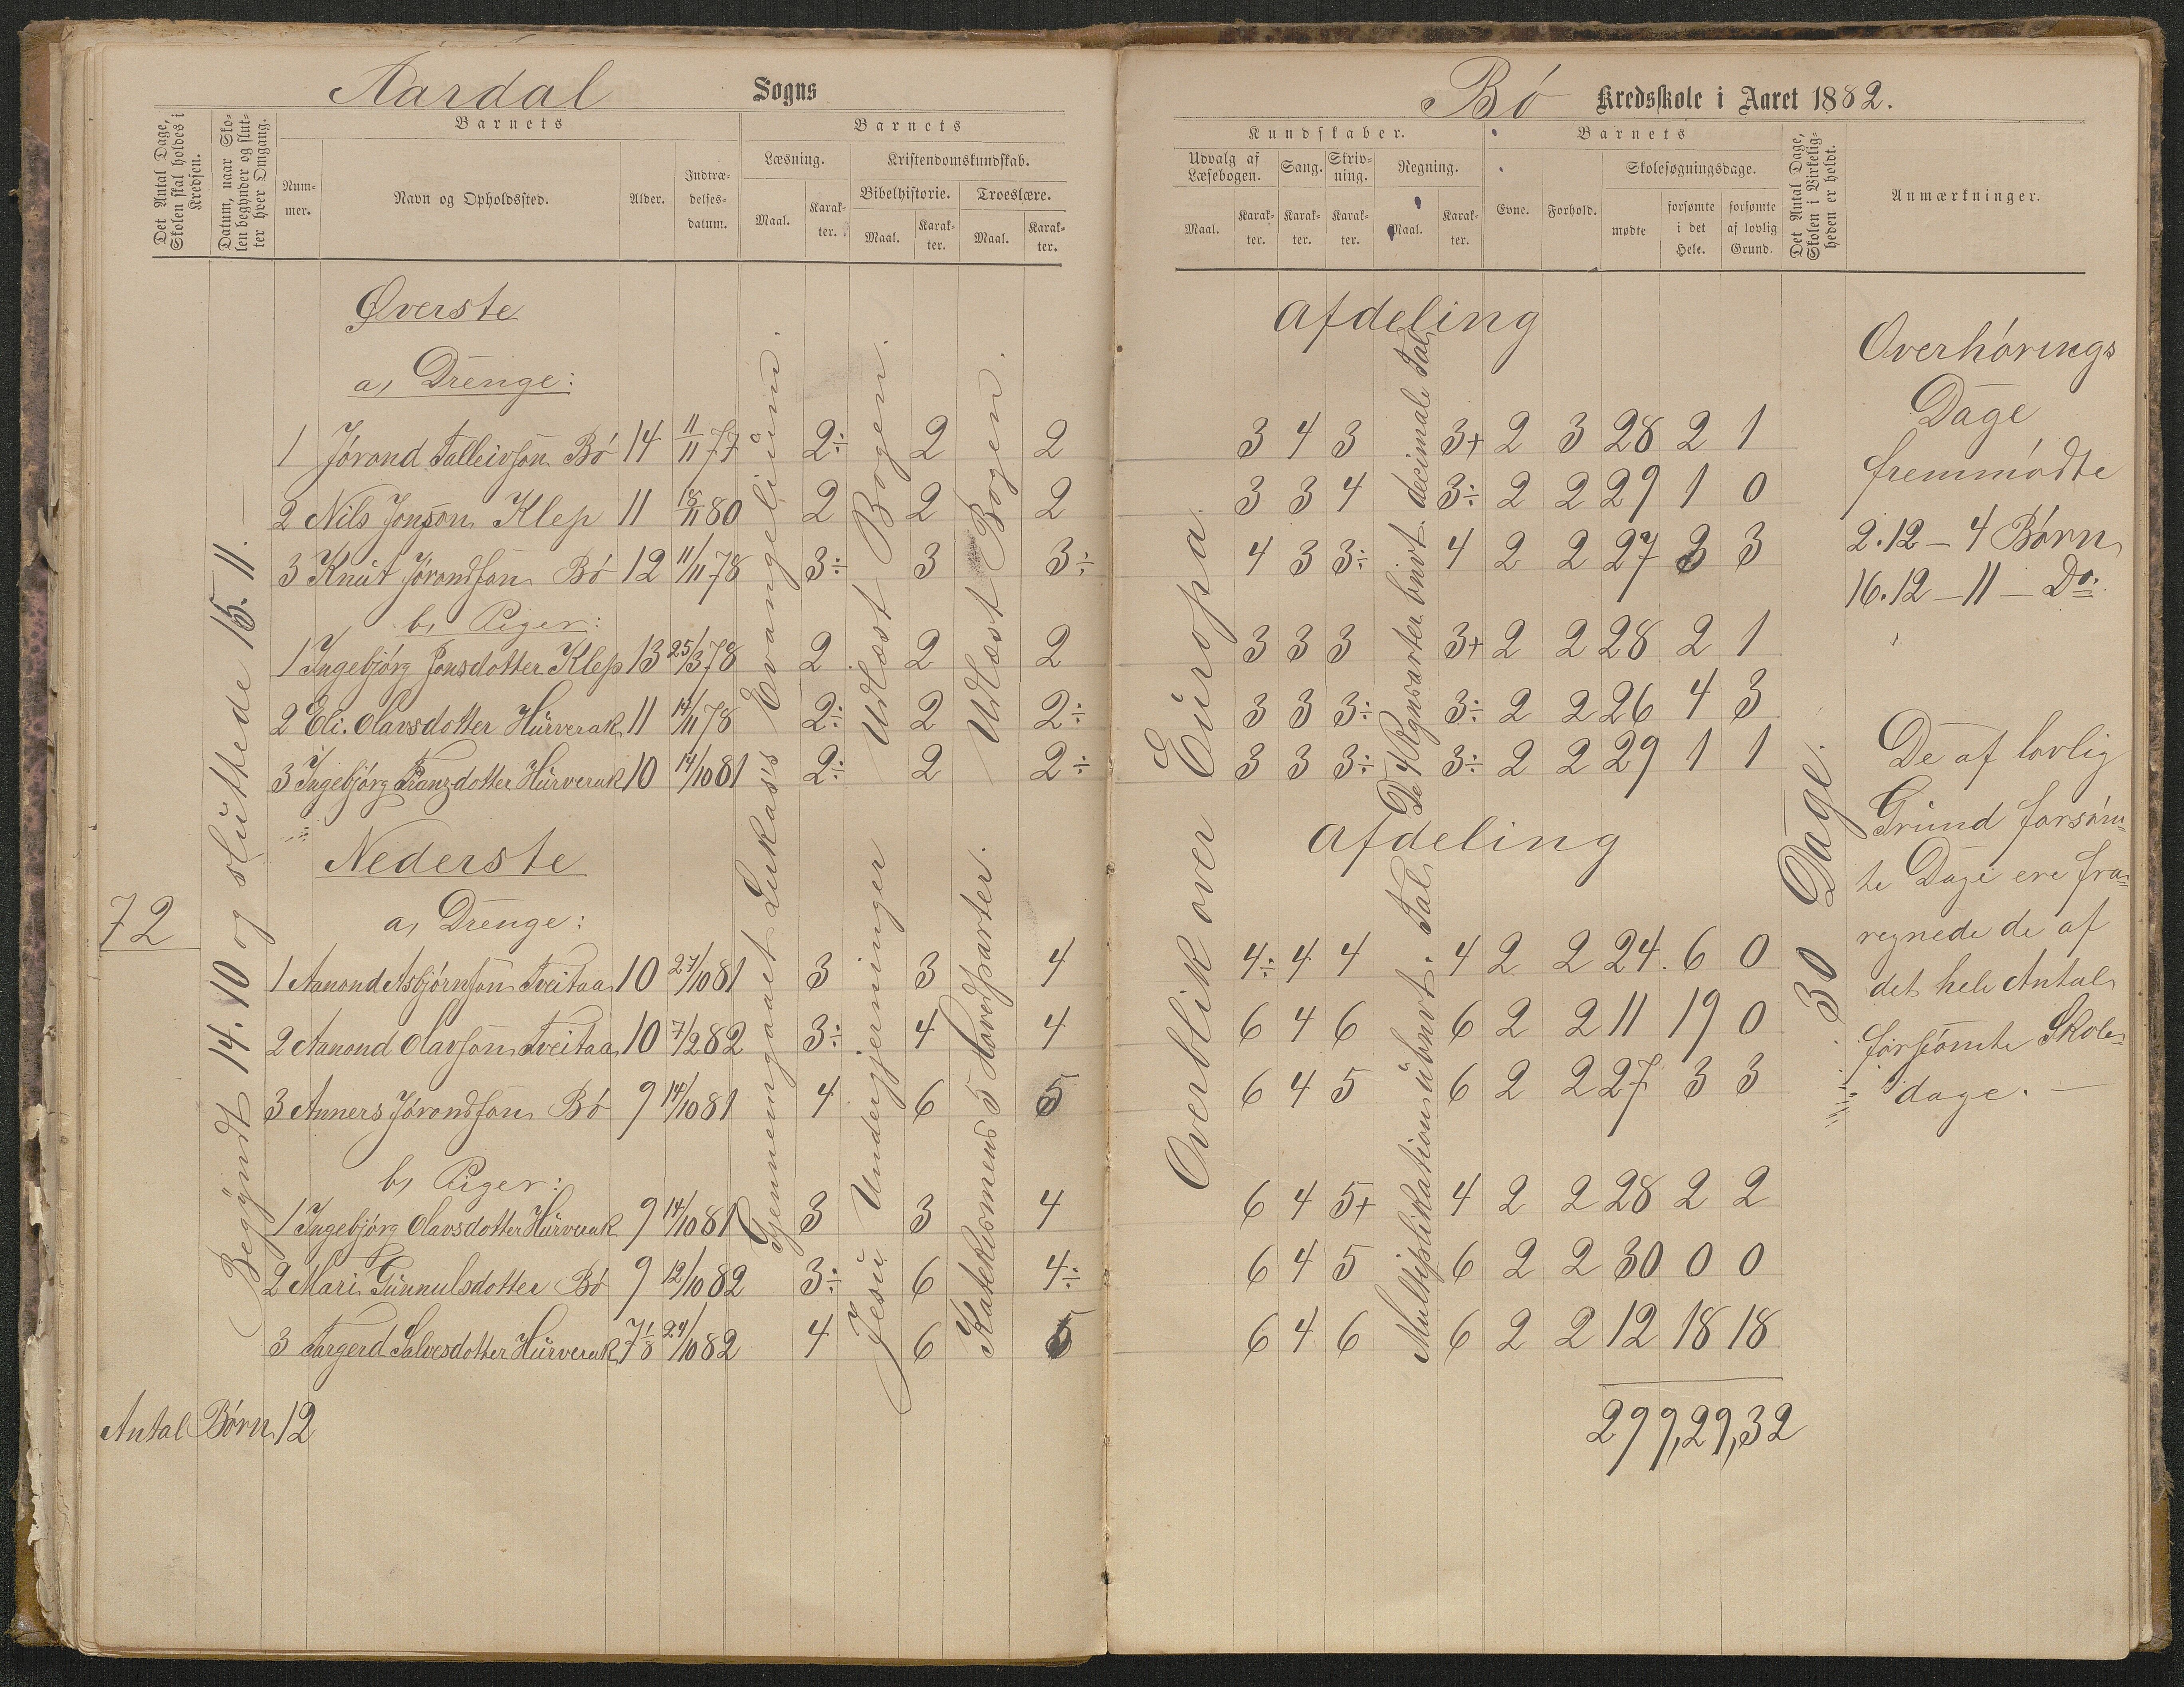 Aardal Sogns
Det Antal Dage, Skolen skal holdes i Kredsen.
Datum, naar Skolen begynder og slutter hver Omgang.
Barnets
Nummer.
Navn og Opholdssted.
Alder.
Indtrædelsesdatum.
Barnets
Læsning.
Maal.
Karakter.
Kristendomskundskab.
Bibelhistorie.
Maal.
Karakter.
Troeslære.
Maal.
Karakter.
72
Begyndt 14.10 og sluttede 15.11. —
Øverste
a, Drenge:
1 Jórond Talleivson Bó 14 11/11 77 2÷ 2 2
2 Nils Jonson Klep 11 18/11 80 2 2 2
3 Knut Jórondson Bó 12 11/11 78 3÷ 3 3÷
b, Piger:
1 Ingebjórg Jonsdotter Klep 13 25/3 78 2 2 2
2 Eli Olavsdotter Hurverak 11 14/11 78 2÷ 2 2÷
3 Ingebjórg Franzdotter Hurverak 10 14/10 81 2÷ 2 2÷
Nederste
a, Drenge:
1 Aanond Asbjórnson Tveitaa 10 27/10 81 3 3 4
2 Aanond Olavson Tveitaa 10 7/2 82 3÷ 4 4
3 Anners Jórondson Bó 9 14/10 81 4 6 5
b, Piger:
1 Ingebjórg Olavsdotter Hurverak 9 14/10 81 3 3 4
2 Mari Gunnulsdotter Bó 9 12/10 82 3÷ 6 4÷
3 Targerd Salvesdotter Hurverak 7 1/8 24/10 82 4 6 5
Gjennemgaaet Lukas's Evangelium.
Udlæst Bogen.
Udlæst Bogen.
Jesu Undergjerninger
Katekismens 5 Hovedparter.
Antal Børn 12
Bó Kredsskole i Aaret 1882.
Kundskaber.
Udvalg af Læsebogen.
Maal.
Karakter.
Sang.
Karakter.
Skrivning.
Karakter.
Regning.
Maal.
Karakter.
Barnets
Evne.
Forhold.
Skolesøgningsdage.
mødte
forsømte i det Hele.
forsømte af lovlig Grund.
Det Antal Dage, Skolen i Virkeligheden er holdt.
Anmærkninger.
Afdeling
3 4 3 3+ 2 3 28 2 1
3 3 4 3÷ 2 2 29 1 0
4 3 3÷ 4 2 2 27 3 3
3 3 3 3+ 2 2 28 2 1
3 3 3÷ 3÷ 2 2 26 4 3
3 3 3÷ 3÷ 2 2 29 1 1
Afdeling
4÷ 4 4 4 2 2 24. 6 0
6 4 6 6 2 2 11 19 0
6 4 5 6 2 2 27 3 3
6 4 5+ 4 2 2 28 2 2
6 4 5 6 2 2 30 0 0
6 4 6 6 2 2 12 18 18
299, 29, 32
Overblik over Europa.
De 4 Regnsarter ubnvt. decimale Tal
Multiplikation ubnvt. Tal
30 Dage.
Overhórings
Dage
fremmódte
2.12 — 4 Børn
16.12 — 11 — Do.
De af lovlig
Grund forsóm-
te Dage ere fra-
regnede de af
det hele Antal
forsómte Skole-
dage. —